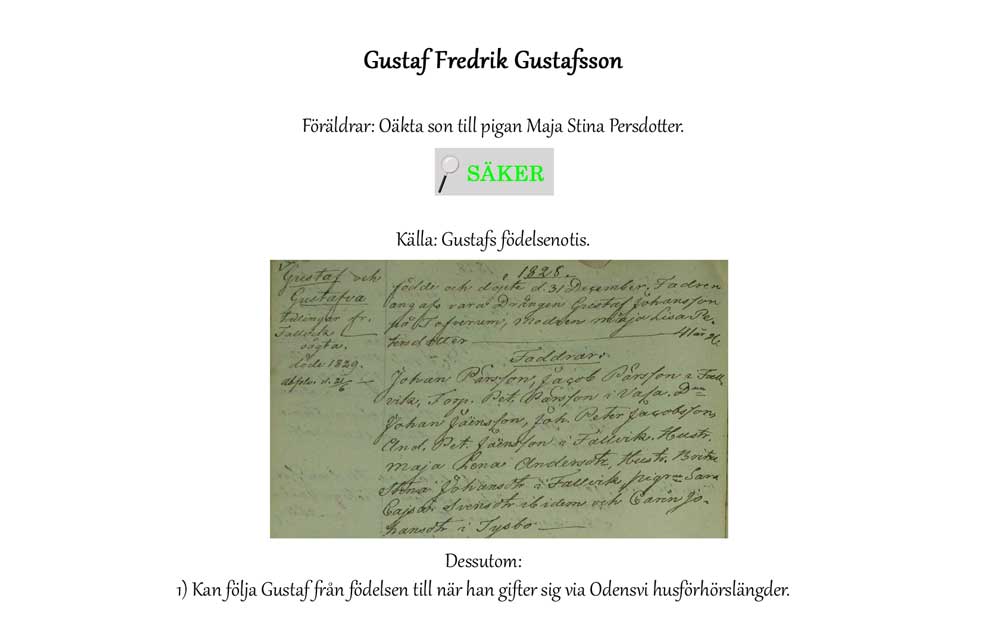 Gustaf Fredrik Gustafsson
Föräldrar: Oäkta son till pigan Maja Stina Persdotter.
SÄKER
Källa: Gustafs födelsenotis.
1828.
Gustaf och
Gustafva
tvillingar fr.
Fallvik
oägta.
döde 1829.
födde och döpte d. 31 December. Fadren
angafs vara Drängen Gustaf Johansson
på Tofverum, modren Maja Lisa Pe-
tersdotter
Faddrar:
Johan Pärsson, Jacob Pärsson i Fall-
vik, Torp. Pet. Pärsson i Vasa. D
Johan Jäensson, Joh. Peter Jacobsson,
And. Pet. Jäensson i Fallvik. Hustr.
Maja Lena Andersdtr, Hustr. Britta
Stina Johansdtr i Fallvik pigrne Sara
Cajsa Svensdtr ibidem och Carin Jo-
hansdtr i Tysbo
Dessutom:
1) Kan följa Gustaf från födelsen till när han gifter sig via Odensvi husförhörslängder.